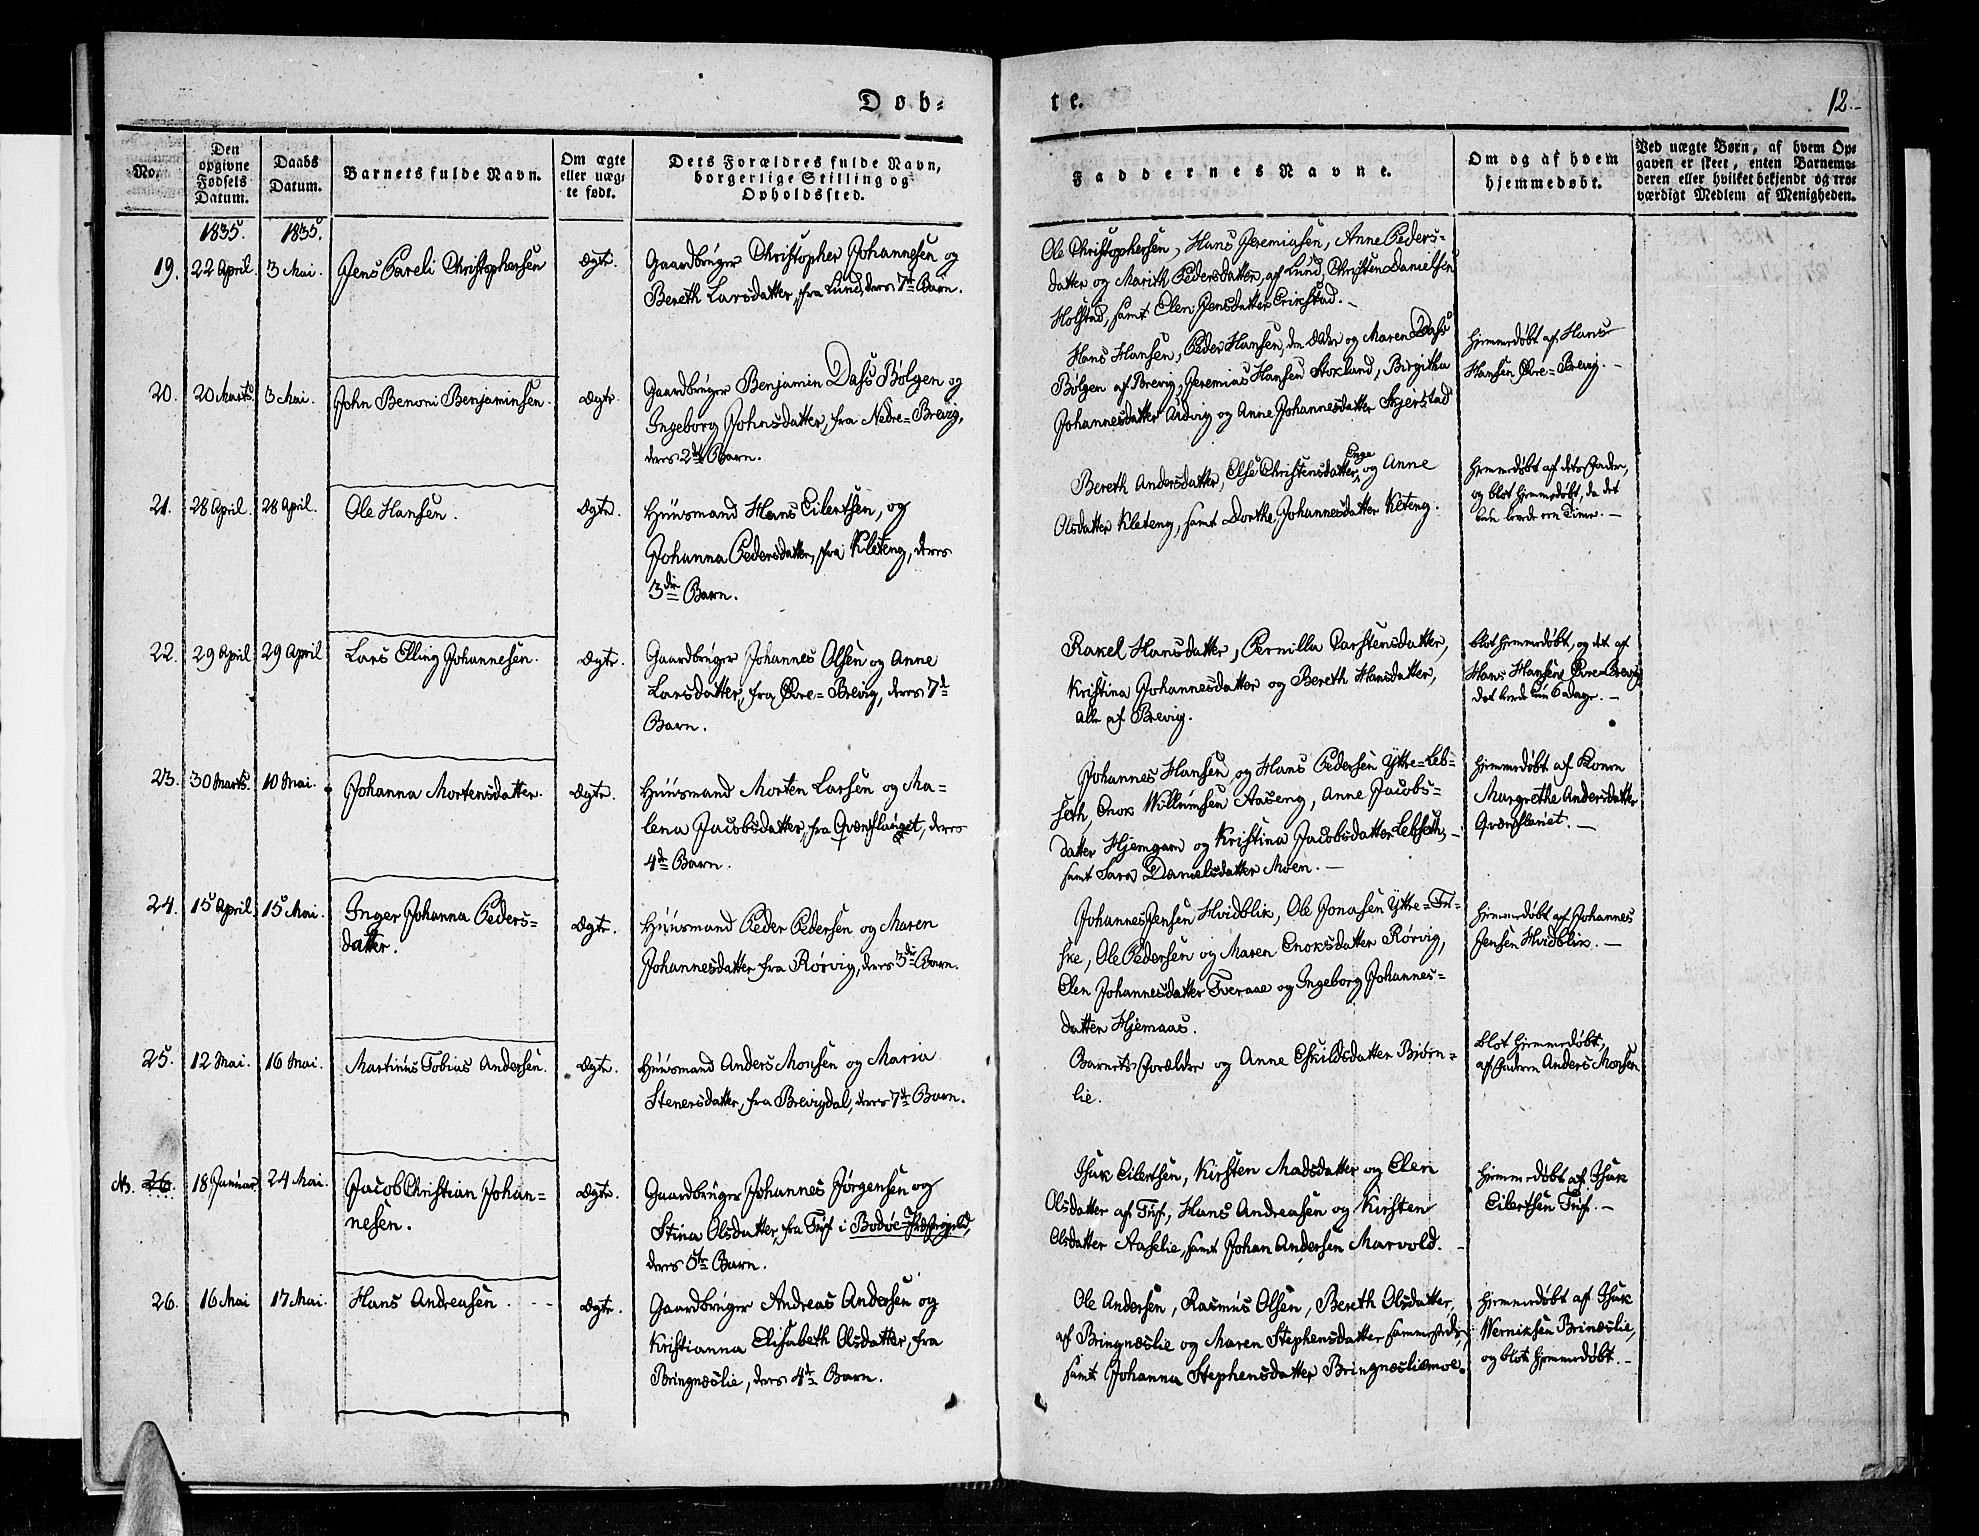 Døb-
te.
12.
No.
Den
opgivne
Fødsels
Datum.
Daabs
Datum.
Barnets fulde Navn.
Om ægte
eller uæg-
te født.
Dets Forældres fulde Navn,
borgerlige Stilling og
Opholdssted.
Faddernes Navne.
Om og af hvem
hjemmedøbt.
Ved uægte Børn, af hvem Op-
gaven er skeet, enten Barnemo-
deren eller hvilket bekjendt og tro-
værdigt Medlem af Menigheden.
1835. 1835.
19. 22 April. 3 Mai. Jens Careli Christophersen
Ægte.
Gaardbruger Christopher Johannesen og
Bereth Larsdatter, fra Lund, deres 7de Barn.
Ole Christophersen, Hans Jeremiasen, Anne Peders-
datter og Marith Pedersdatter, af Lund, Christen Danielsen
Holstad, samt Elen Jensdatter Erikstad.
20. 20 Marts. 3 Mai. John Benoni Benjaminsen.
Ægte.
Gaardbruger Benjamin Dass Bølgen og
Ingeborg Johnsdatter, fra Nedre-Brevig,
deres 2det Barn.
Hans Hansen, Peder Hansen, den Ældre og Maren Dass
Bølgen af Brevig, Jeremias Hansen Stoklund, Birgitha
Johannesdatter Udvig og Anne Johannesdatter Skjerstad
hjemmedøbt af Hans
Hansen Øvre-Brevig.
21. 28 April. 28 April. Ole Hansen.
Ægte.
Huusmand Hans Eilertsen, og
Johanna Pedersdatter, fra Kleteng, deres
3die Barn.
Bereth Andersdatter, Else Christensdatter Enge, og Anne
Olsdatter Kleteng, samt Dorthe Johannesdatter Kleteng.
hjemmedøbt af dets Fader,
og blot hjemmedøbt, da det
kun levede een Time.
22. 29 April 29 April Lars Elling Johannesen.
Ægte.
Gaardbruger Johannes Olsen og Anne
Larsdatter, fra Øvre-Brevig, deres 7de
Barn.
Rakel Hansdatter, Pernilla Carstensdatter,
Kristina Johannesdatter og Bereth Hansdatter,
alle af Brevig.
blot hjemmedøbt, og det af
Hans Hansen Øvre-Brevig
det levede kun 6 dage.
23. 30 Marts. 10 Mai. Johanna Mortensdatter.
Ægte.
Huusmand Morten Larsen og Ma-
lena Jacobsdatter, fra Qvænflaaget, deres
4de Barn.
Johannes Hansen og Hans Pedersen Yttre-Leb-
seth, Enok Willumsen Aaseng, Anne Jacobs-
datter Hjemgam og Kristina Jacobsdatter Lebseth,
samt Sara Danielsdatter Moen.
hjemmedøbt af Konen
Margrethe Andersdatter
24. 15 April. 15 Mai. Inger Johanna Peders-
datter.
Ægte.
Huusmand Peder Pedersen og Maren
Johannesdatter fra Rørvig, deres 3die Barn.
Johannes Jensen Hvidblik, Ole Jonasen Yttre-Fu-
ske, Ole Pedersen og Maren Enoksdatter Rørvig,
Elen Johannesdatter Tveraae og Ingeborg Johannes-
datter Hjemaas.
hjemmedøbt af Johannes
Jensen Hvidblik.
25. 12 Mai. 16 Mai. Martinus Tobias Andersen.
Ægte.
Huusmand Anders Monsen og Maria
Stenersdatter, fra Brevigdal, deres 7de Barn.
Barnets Forældre og Anne Eskildsdatter Biørn-
lie.
blot hjemmedøbt,
af Faderen Anders Monsen
26. 18 Januar 24 Mai. Jacob Christian Johan-
nesen.
Ægte.
Gaardbruger Johannes Jørgensen og
Stina Olsdatter, fra Tuf i Bodøe Præstegjeld,
deres 5te Barn.
Isak Eilertsen, Kirsten Madsdatter og Elen
Olsdatter af Tuf, Hans Andreasen og Kirsten
Olsdatter Aaselie, samt Johan Andersen Marvold.
hjemmedøbt af Isak
Eilertsen Tuf.
26. 16 Mai 17 Mai. Hans Andreasen.
Ægte.
Gaardbruger Andreas Andersen og
Kristianna Elisabeth Olsdatter, fra
Bringnæslie, deres 4de Barn.
Ole Andersen, Rasmus Olsen, Bereth Olsdatter,
af Bringnæslie og Maren Stephensdatter sammesteds,
samt Johanna Stephensdatter Bringnæsliemoe.
hjemmedøbt af Isak
Werniksen Brinæslie,
og blot hjemmedøbt.